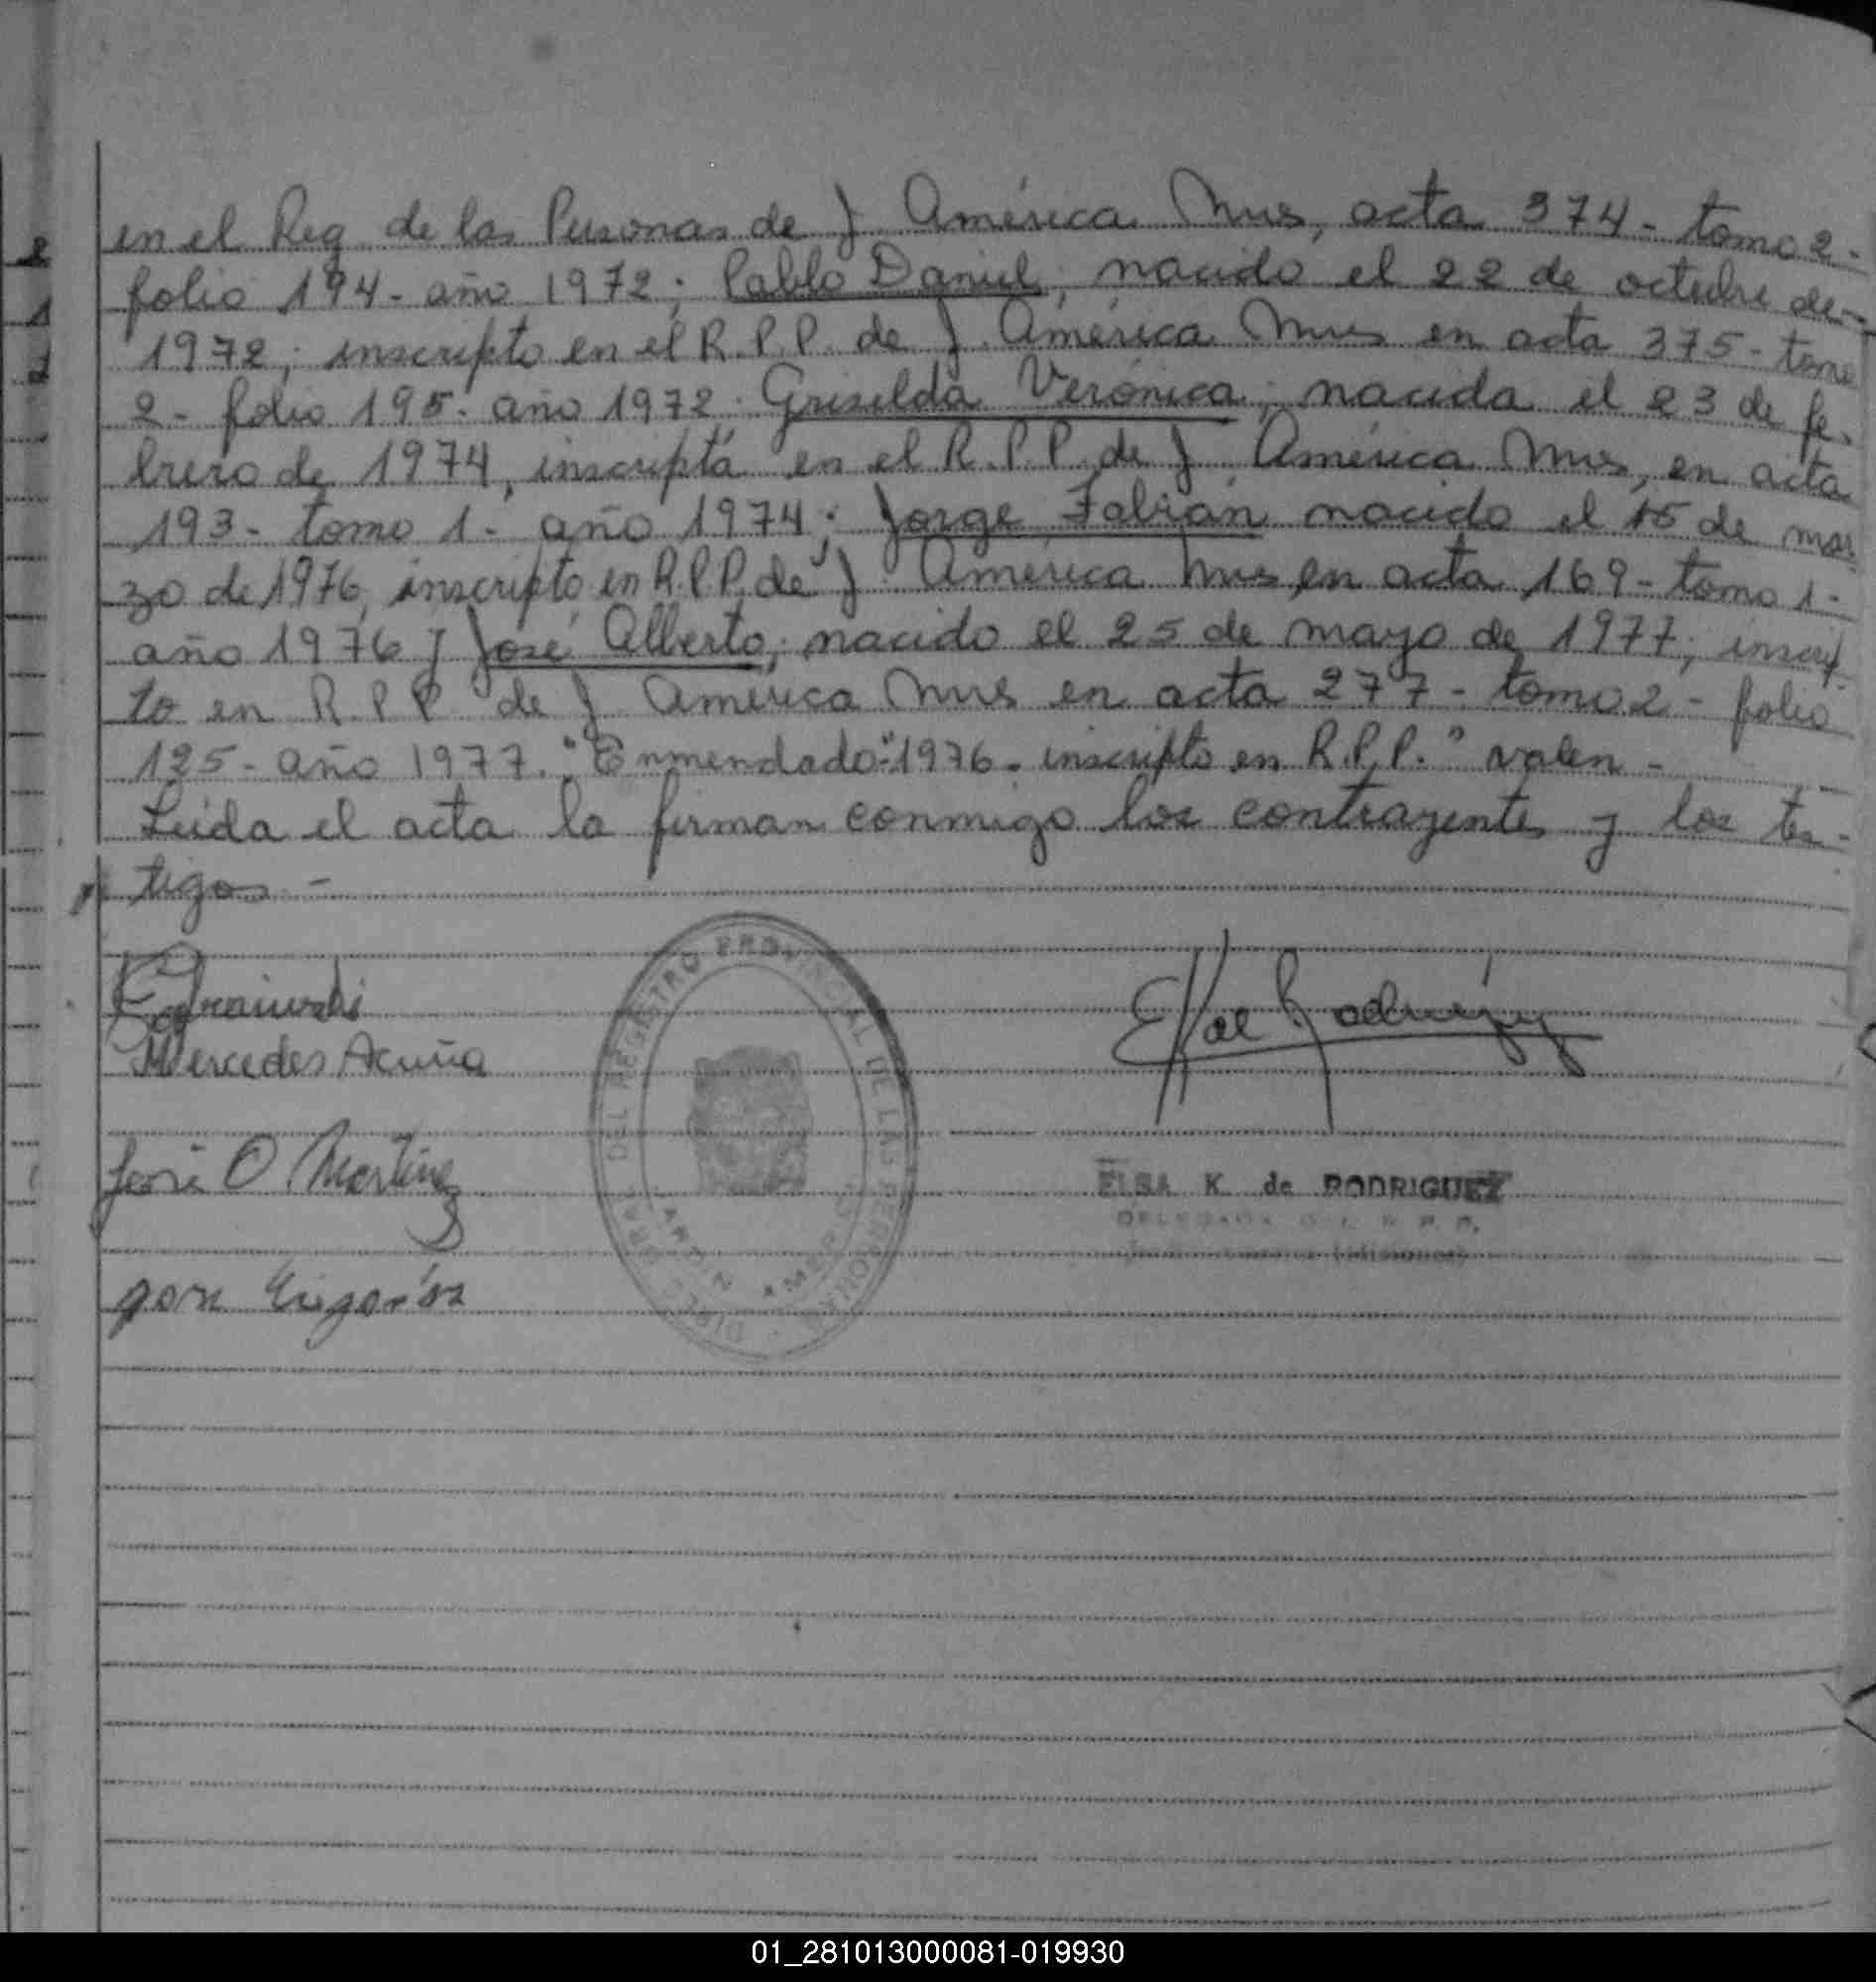 en el Reg. de las Personas de J. América Mnes, acta 374 - tomo 2 -
folio 194 - año 1972; Pablo Daniel, nacido el 22 de octubre de
1972, inscripto en el R.P.P. de J. América Mnes en acta 375 - tomo
2 - folio 195 - año 1972; Griselda Verónica, nacida el 23 de fe-
brero de 1974, inscripta en el R.P.P. de J. América Mnes, en acta
193 - tomo 1 - año 1974; Jorge Fabián nacido el 15 de mar
zo de 1976, inscripto en R.P.P. de J. América Mnes en acta 169 - tomo 1 -
año 1976 y José Alberto, nacido el 25 de mayo de 1977, inscrip
to en R.P.P. de J. América Mnes en acta 277 - tomo 2 - folio
125 - año 1977. "Enmendado: 1976 - inscripto en R.P.P." valen -
Leída el acta la firman conmigo los contrayentes y los tes-
tigos -
Mercedes Acuña
José O Martinez
ELSA K. de RODRIGUEZ
DIREC. GRAL. DEL REGISTRO PROVINCIAL DE LAS PERSONAS
01_281013000081-019930